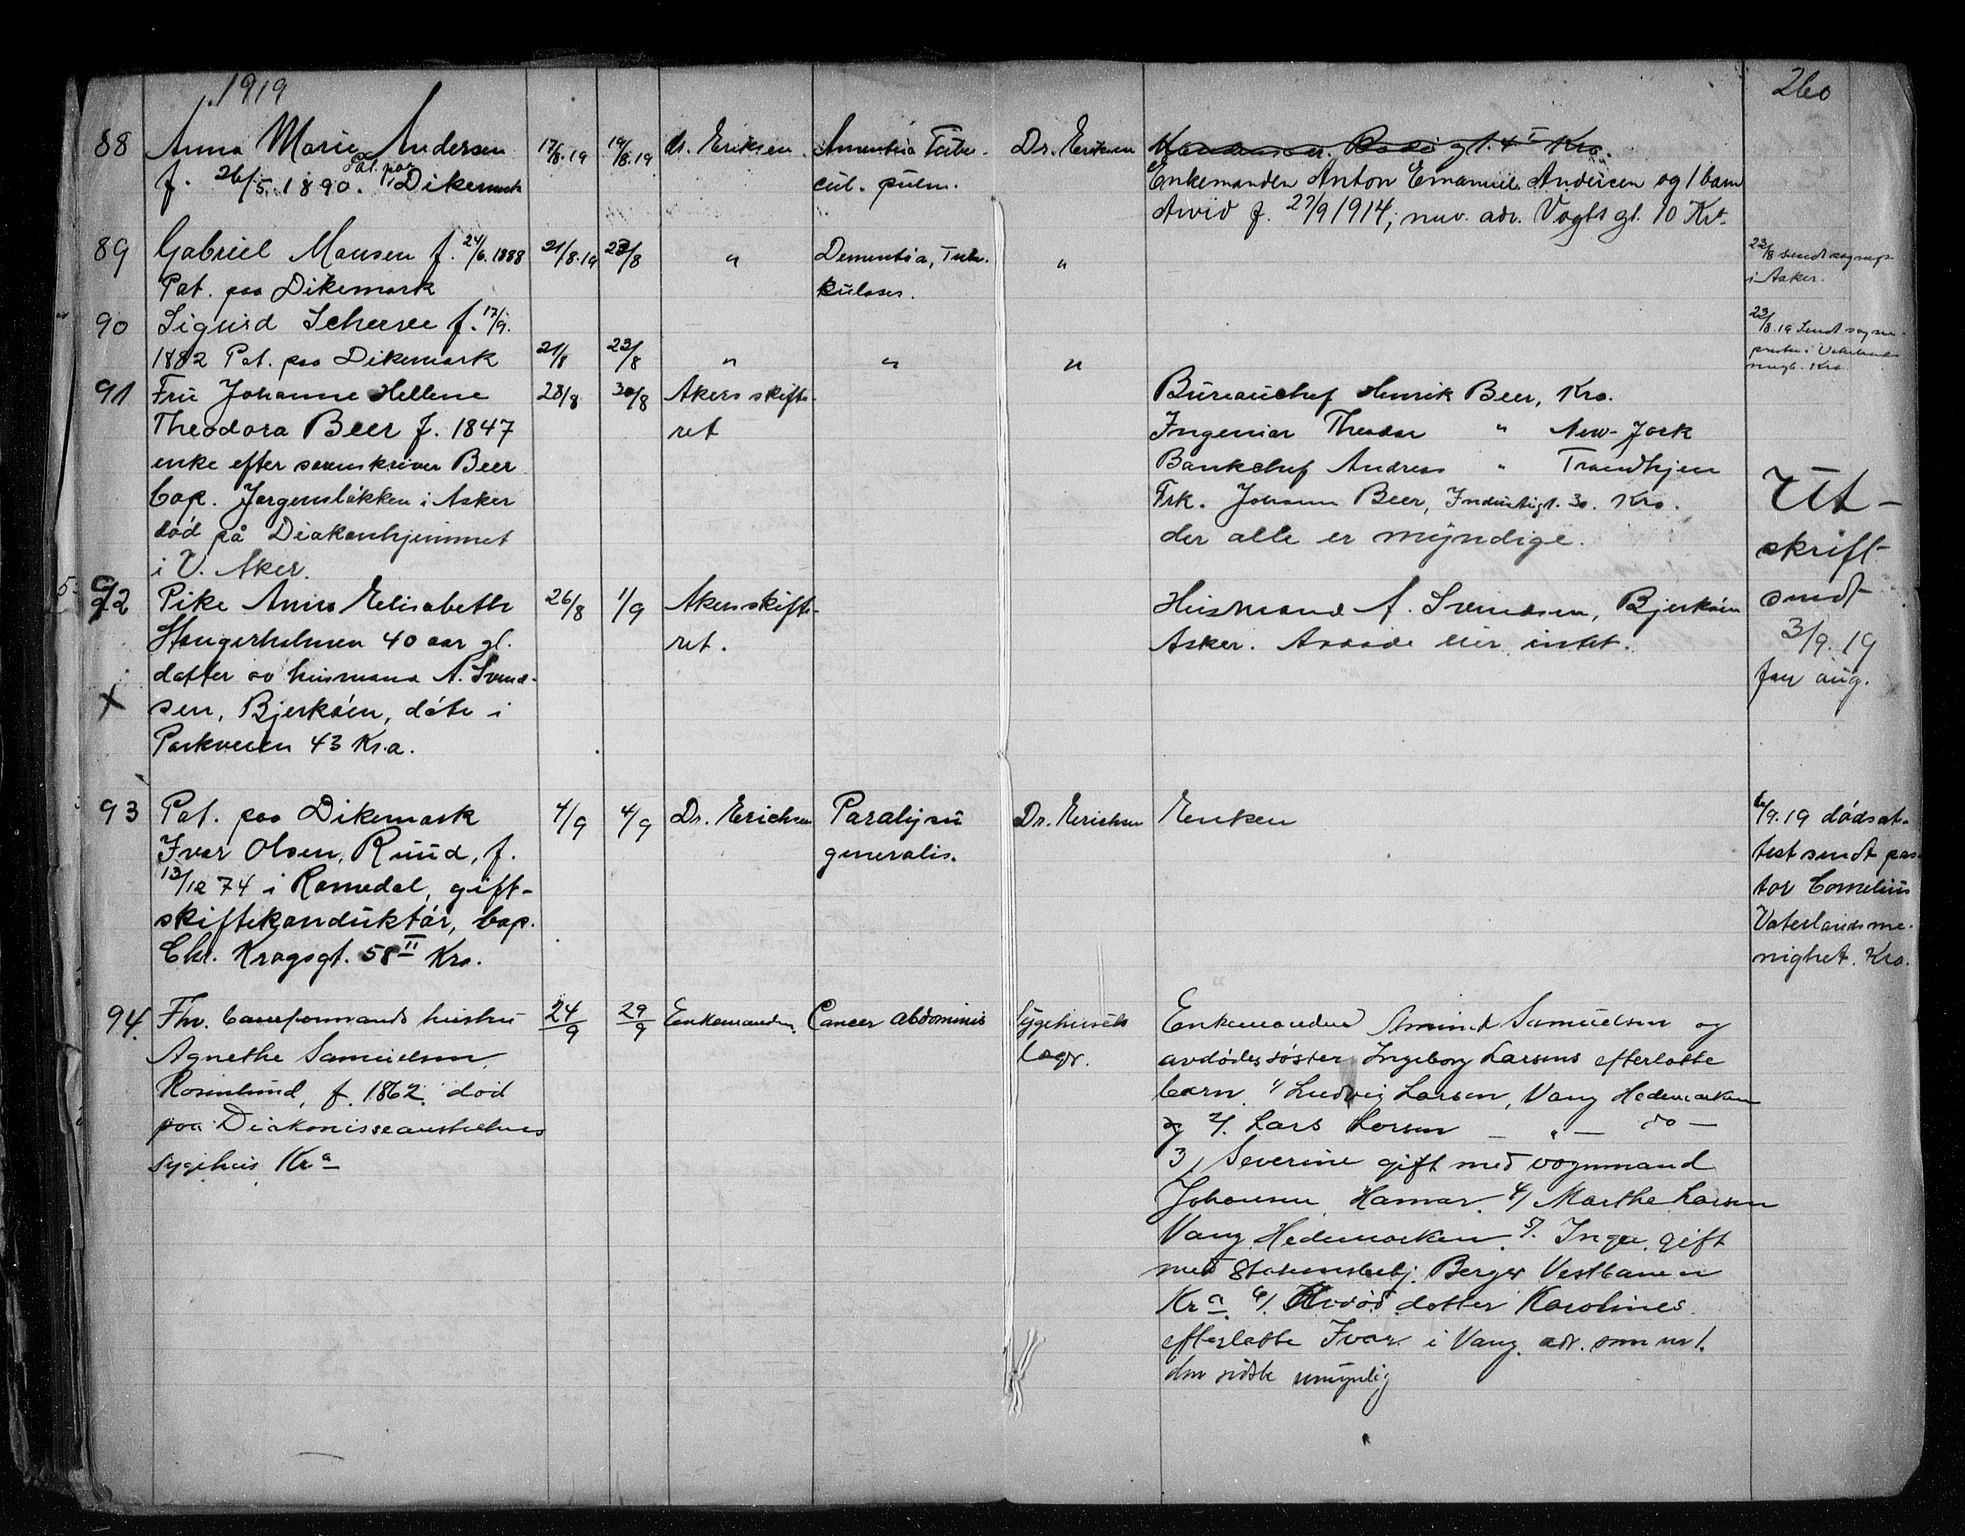 1919
260
88
Anna Marie Andersen
f. 26/5 1890. Pat. paa Dikemark
17/8.19
19/8.19
dr. Eriksen
Amentia Tuber-
cul. pulm.
Dr. Eriksen
gt. 4 I Kra.
Enkemanden Anton Emanuel Andersen og 1 barn
Arvid f. 27/9 1914, nuv. adr. Vogts gt. 10 Kra.
89
Gabriel Monsen f. 24/6. 1888
Pat. paa Dikemark
21/8.19
23/8
"
Dementia, Tuber-
kuloses.
"
23/8 sendt sognepr
i Asker.
90
Sigurd f. 17/9.
1882 Pat. paa Dikemark
21/8
23/8
"
"
"
23/8.19 Sendt sogne-
prest i Vaterlands
menigh. Kra
91
Fru Johanne Hellene
Theodora Beer f. 1847
enke efter sorenskriver Beer
bop. Jørgensløkken i Asker
død på Diakonhjemmet
i V. Aker.
28/8
30/8
Akers skifte-
ret
Bureauchef Henrik Beer, Kra.
Ingeniør Theodor " New-York
Bankchef Andreas " Trondhjem
Frk. Johann Beer, Industrigt. 30. Kra.
der alle er myndige.
Ut-
skrift
sendt
3/9.19
for aug.
92
X
Pike Anna Elisabeth
Haugerholmen 40 aar gl.
datter av husmand A. Svend-
sen, Bjerkåen, døde i
Parkveien 43 Kr.a.
26/8
1/9
Akersskifte-
ret.
Husmand A. Svendsen, Bjerkåen
Asker. Avdøde eier intet.
93
Pat. paa Dikemark
Ivar Olsen, Ruud, f.
13/12 74 i Romedal, gift-
skiftekonduktør, bop.
Chr. Krogsgt. 58 II Kra.
4/9
4/9
Dr. Erichsen
Paralysis
generalis.
Dr. Erichsen
Enken
6/9.19 dødsat-
test sendt pas-
tor Cornelius
Vaterlandsme-
nighet. Kra.
94.
Fhv. baneformands hustru
Agnethe Samuelsen
Rosenlund, f. 1862. død
paa Diakonisseanstaltens
sygehus Kra
24/9
29/9
Enkemanden
Cancer abdominis
Sygehusets
læge.
Enkemanden Amund Samuelsen og
avdødes søster Ingeborg Larsens efterlatte
barn 1/ Ludvig Larsen, Vang Hedemarken
og 2/. Lars Larsen — " — do —
3/ Severine gift med vognmand
Johansen Hamar. 4/ Marthe Larsen
Vang Hedemarken. 5/. Inga gift
med Stationsbetj. Berger Vestbanen
Kra 6/. Avdød datter Karolines
efterlatte Ivar i Vang. adr. som nr 1.
den sidste umynlig